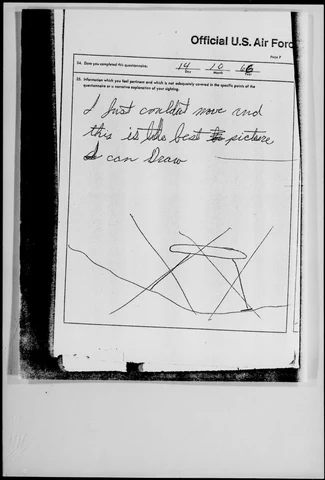 Official U.S. Air Forc
Page 7
34. Date you completed this questionnaire: 14 10 66
Day Month Year
35. Information which you feel pertinent and which is not adequately covered in the specific points of the
questionnaire or a narrative explanation of your sighting.
I Just couldnt move and
this is the best picture
I can Draw